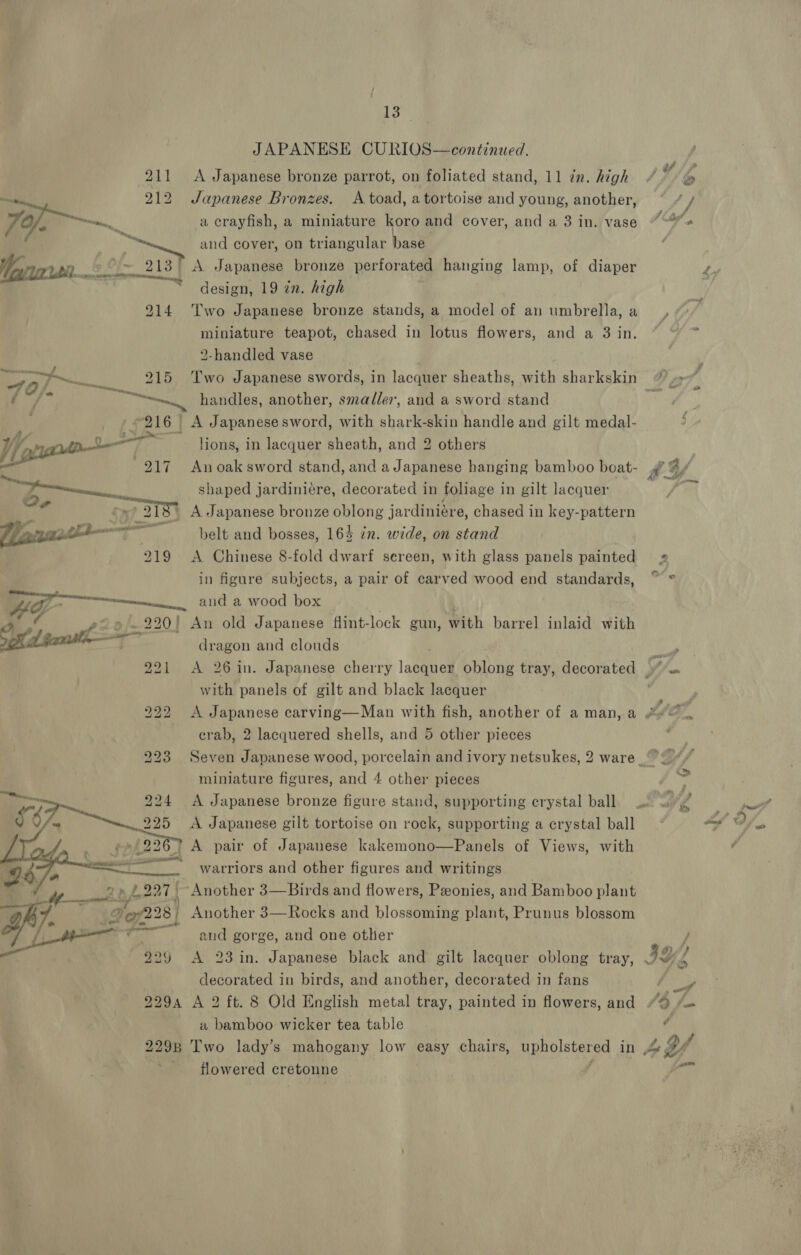 13
JAPANESE CURIOS—continued.
211 A Japanese bronze parrot, on foliated stand, 11 in. high
212 Japanese Bronzes. A toad, a tortoise and young, another,
a crayfish, a miniature koro and cover, and a 3 in. vase
and cover, on triangular base
213 A Japanese bronze perforated hanging lamp, of diaper
design, 19 in. high
214 Two Japanese bronze stands, a model of an umbrella, a
miniature teapot, chased in lotus flowers, and a 3 in.
2-handled vase
215 Two Japanese swords, in lacquer sheaths, with sharkskin
handles, another, smaller, and a sword stand
216 A Japanese sword, with shark-skin handle and gilt medal-
lions, in lacquer sheath, and 2 others
217 An oak sword stand, and a Japanese hanging bamboo boat-
shaped jardinière, decorated in foliage in gilt lacquer
218 A Japanese bronze oblong jardinière, chased in key-pattern
belt and bosses, 16½ in. wide, on stand
219 A Chinese 8-fold dwarf screen, with glass panels painted
in figure subjects, a pair of carved wood end standards,
and a wood box
220 An old Japanese flint-lock gun, with barrel inlaid with
dragon and clouds
221 A 26 in. Japanese cherry lacquer oblong tray, decorated
with panels of gilt and black lacquer
222 A Japanese carving—Man with fish, another of a man, a
crab, 2 lacquered shells, and 5 other pieces
223 Seven Japanese wood, porcelain and ivory netsukes, 2 ware
miniature figures, and 4 other pieces
224 A Japanese bronze figure stand, supporting crystal ball
225 A Japanese gilt tortoise on rock, supporting a crystal ball
226 A pair of Japanese kakemono—Panels of Views, with
warriors and other figures and writings
227 Another 3—Birds and flowers, Pæonies, and Bamboo plant
228 Another 3—Rocks and blossoming plant, Prunus blossom
and gorge, and one other
229 A 23 in. Japanese black and gilt lacquer oblong tray,
decorated in birds, and another, decorated in fans
229A A 2 ft. 8 Old English metal tray, painted in flowers, and
a bamboo wicker tea table
229B Two lady's mahogany low easy chairs, upholstered in
flowered cretonne